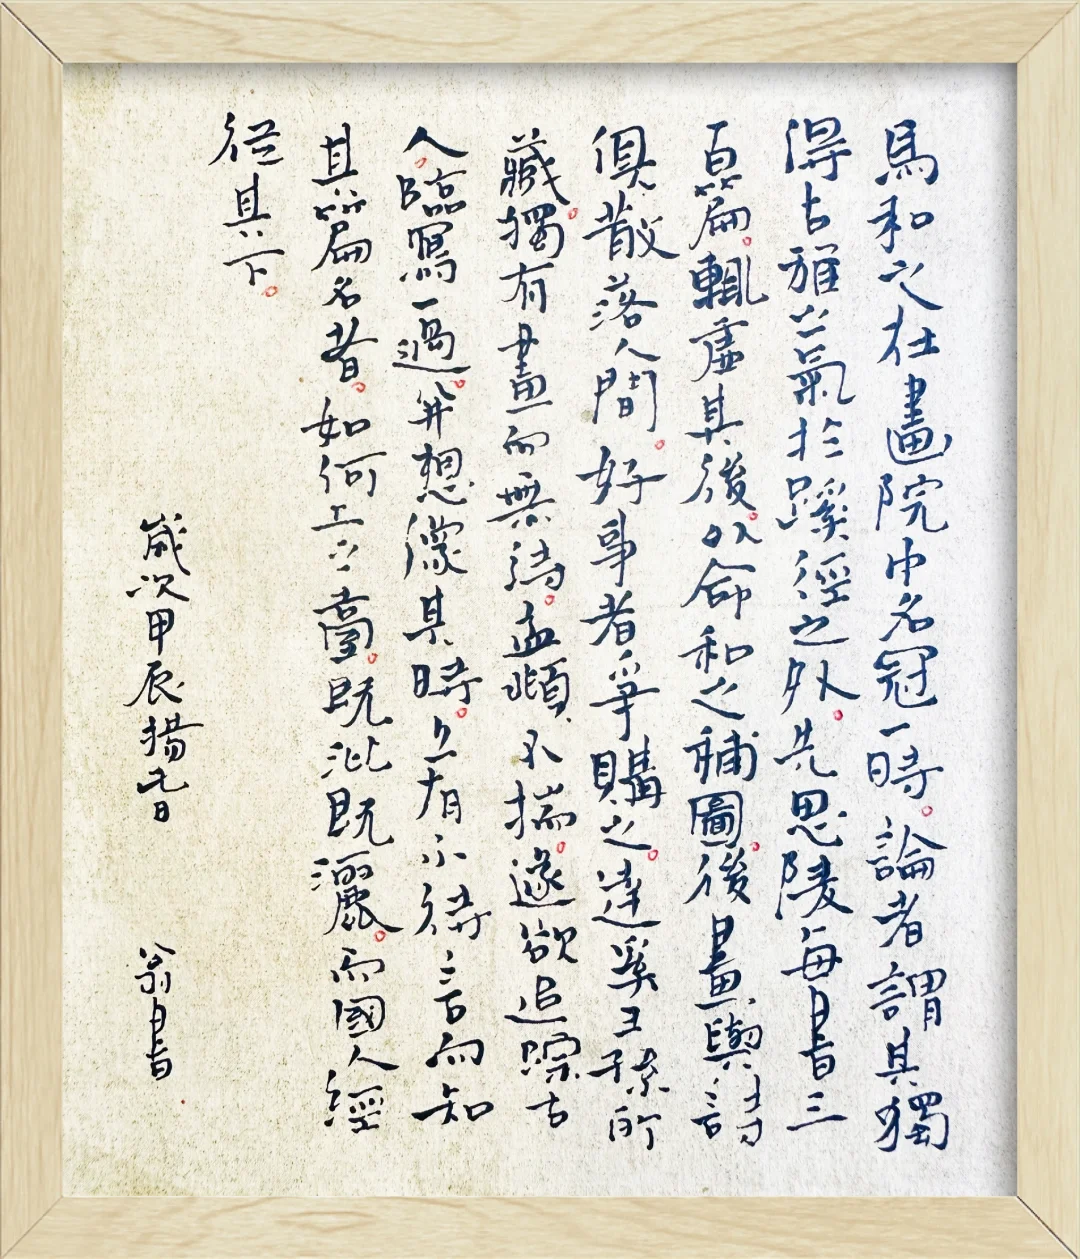 馬和之在畫院中名冠一時。論者謂其獨
得古雅之氣於蹊徑之外。先思陵每書三
百篇。輒虛其後。以命和之補圖。後畫與詩
俱散落人間。好事者爭購之。達奚王孫所
藏。獨有畫而無詩。孟頫不揣。遂欲追踪古
人。臨寫一過。并想像其時。亦有不待言而知
其篇名者。如何上之臺。既泚既灑。而國人經
從其下。
歲次甲辰揚
翁書